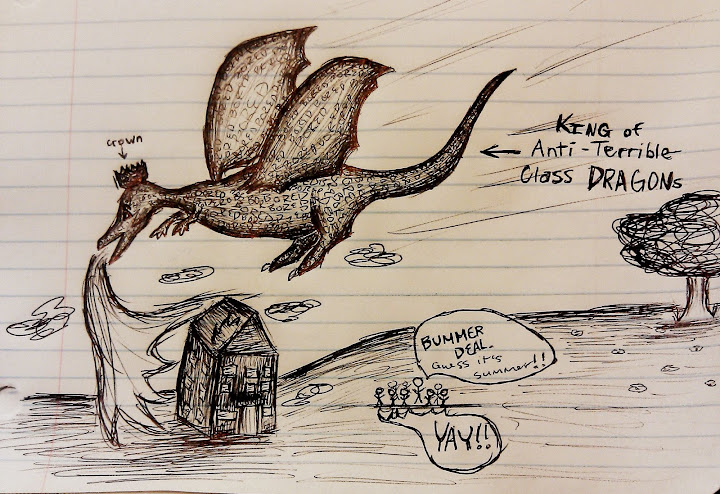 crown
KING of
Anti-Terrible
Class DRAGONs
BUMMER
DEAL.
Guess it's
summer!!
YAY!!